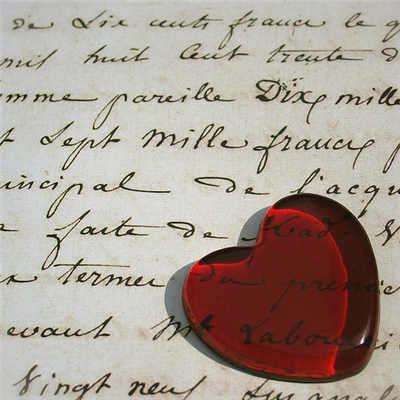 de Six cents francs le
mil huit Cent trente
omme pareille Dix mille
t Sept Mille francs p
incipal de l'acqu
faite de Mad
termes du premie
evant Me Labou
Vingt neuf